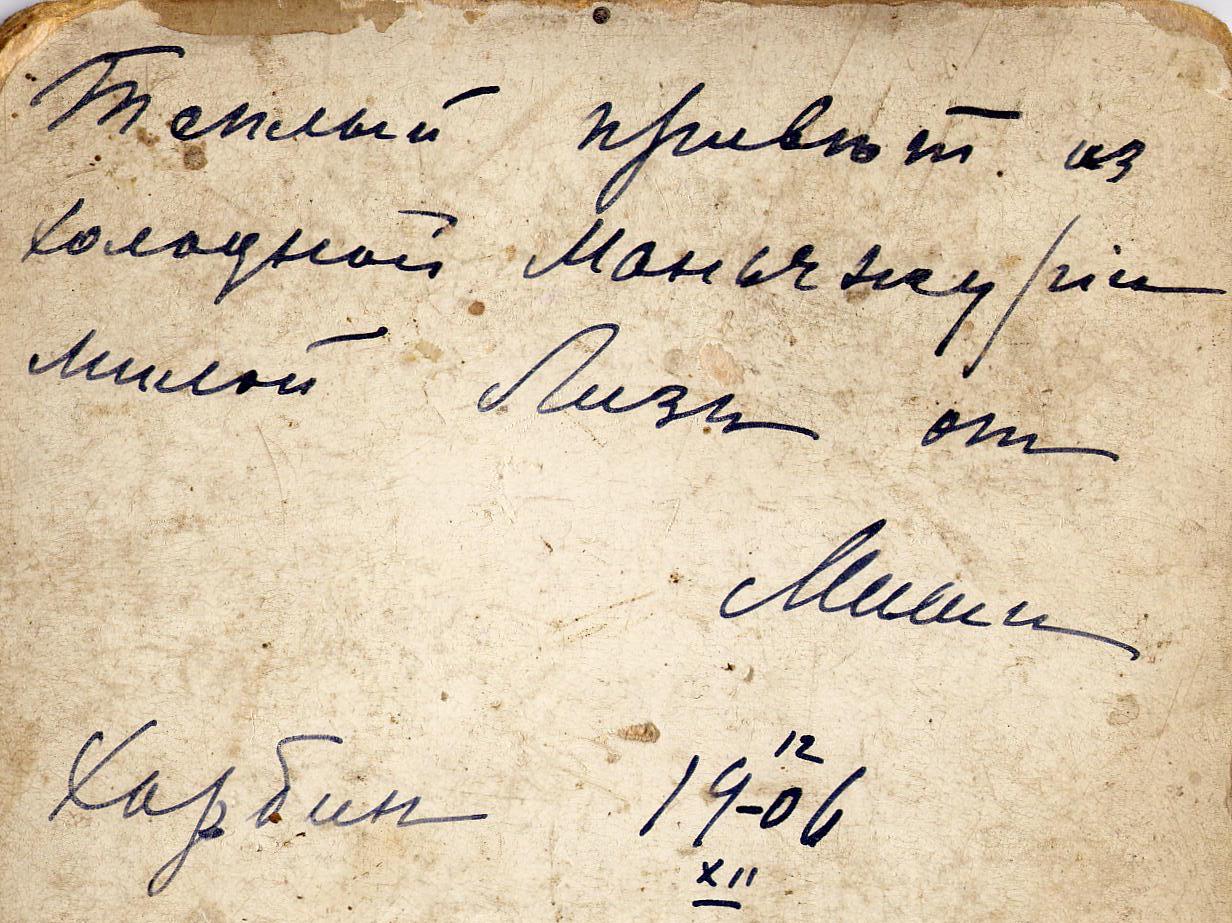 Теплый привѣт из
холодной Маньчжуріи
милой Лизы от
Миши
Харбин 19 12/XII 06